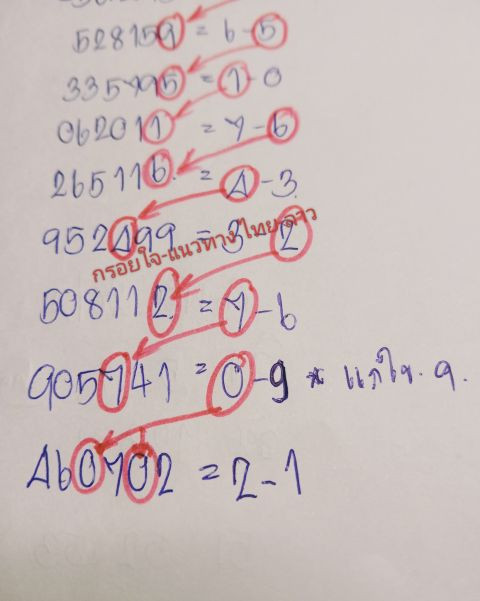 528159 = 6-5
335795 = 1-0
062011 = 7-6
265116. = 4-3.
952499 = 3-2
กรอยใจ-แนวทางไทย-ลาว
508112. = 7-6
905741 = 0-9 * แก้ไข. 9.
460702 = 2-1